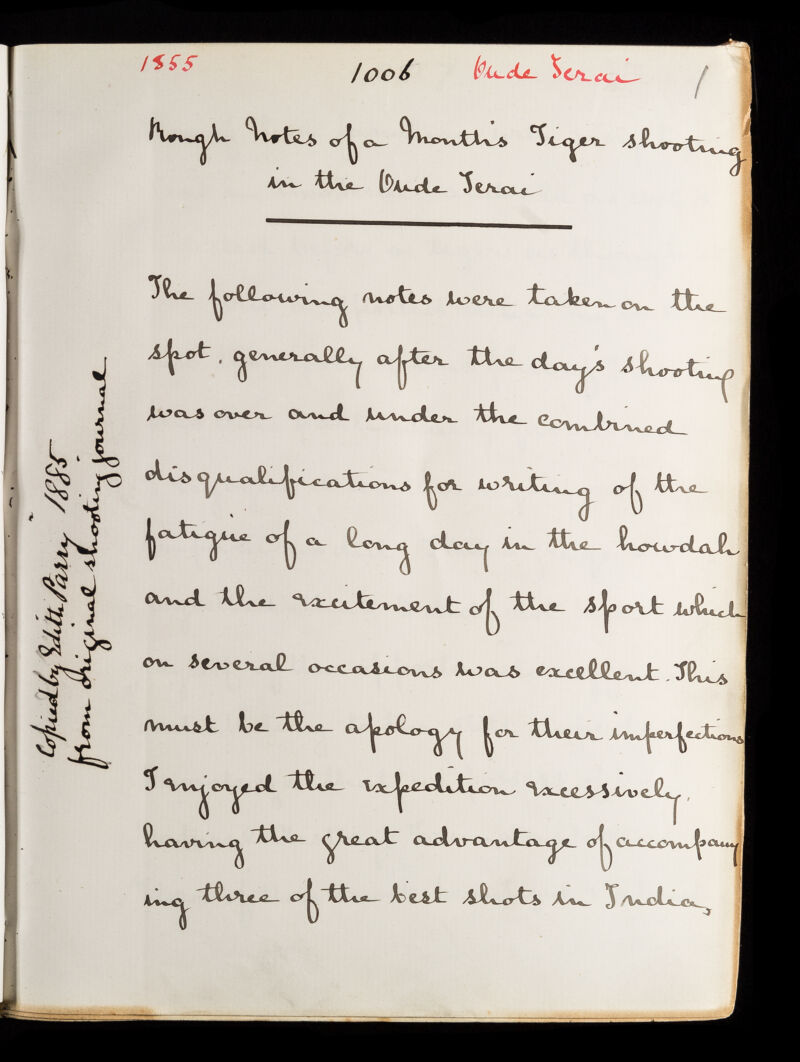 1855 1006 Oude Terai 1
Rough Notes of a Month's Tiger shooting
in the Oude Terai
The following notes were taken on the
spot, generally after the day's shooting
was over and under the combined
disqualifications for writing of the
fatigue of a long day in the howdah
and the excitement of the sport which
on several occasions was excellent. This
must be the apology for their imperfections
I enjoyed the expedition excessively,
having the great advantage of accompany
ing three of the best shots in India,
Copied by Edith Parry 1885
from original shooting journal